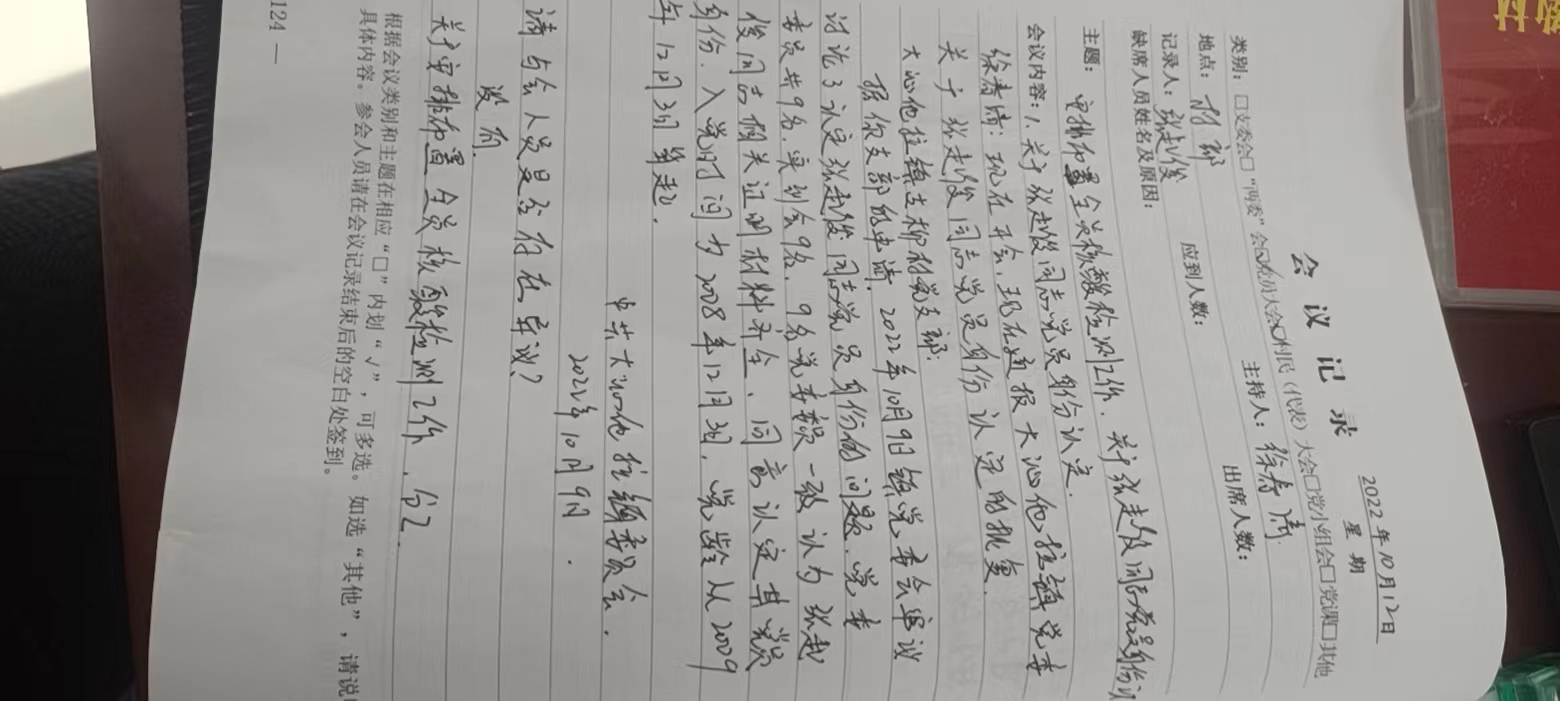 教材
会议记录
2022年10月12日
星期
类别：□支委会□“两委”会☑党员大会□村民（代表）大会□党小组会□党课□其他
地点：村部
主持人：徐寿清
记录人：张赵俊
应到人数：
出席人数：
缺席人员姓名及原因：
主题：安排布置全员核酸检测工作．关于张赵俊同志党员身份认
会议内容：1.关于张赵俊同志党员身份认定．
徐寿清：现在开会，现在通报大沁他拉镇党委
关于张赵俊同志党员身份认定的批复．
大沁他拉镇 村党支部：
据你支部的申请，2022年10月9日镇党委会审议
讨论了认定张赵俊同志党员身份的问题．党委
委员共9名，实到会9名，9名党委委员一致认为张赵
俊同志相关证明材料齐全，同意认定其党员
身份．入党时间为2008年12月3日，党龄从2009
年12月3日算起．
中共大沁他拉镇委员会．
2022年10月9日．
请与会人员是否存在异议？
没有．
关于安排布置全员核酸检测工作．分工．
根据会议类别和主题在相应“□”内划“√”，可多选。如选“其他”，请说
具体内容。参会人员请在会议记录结束后的空白处签到。
124 —